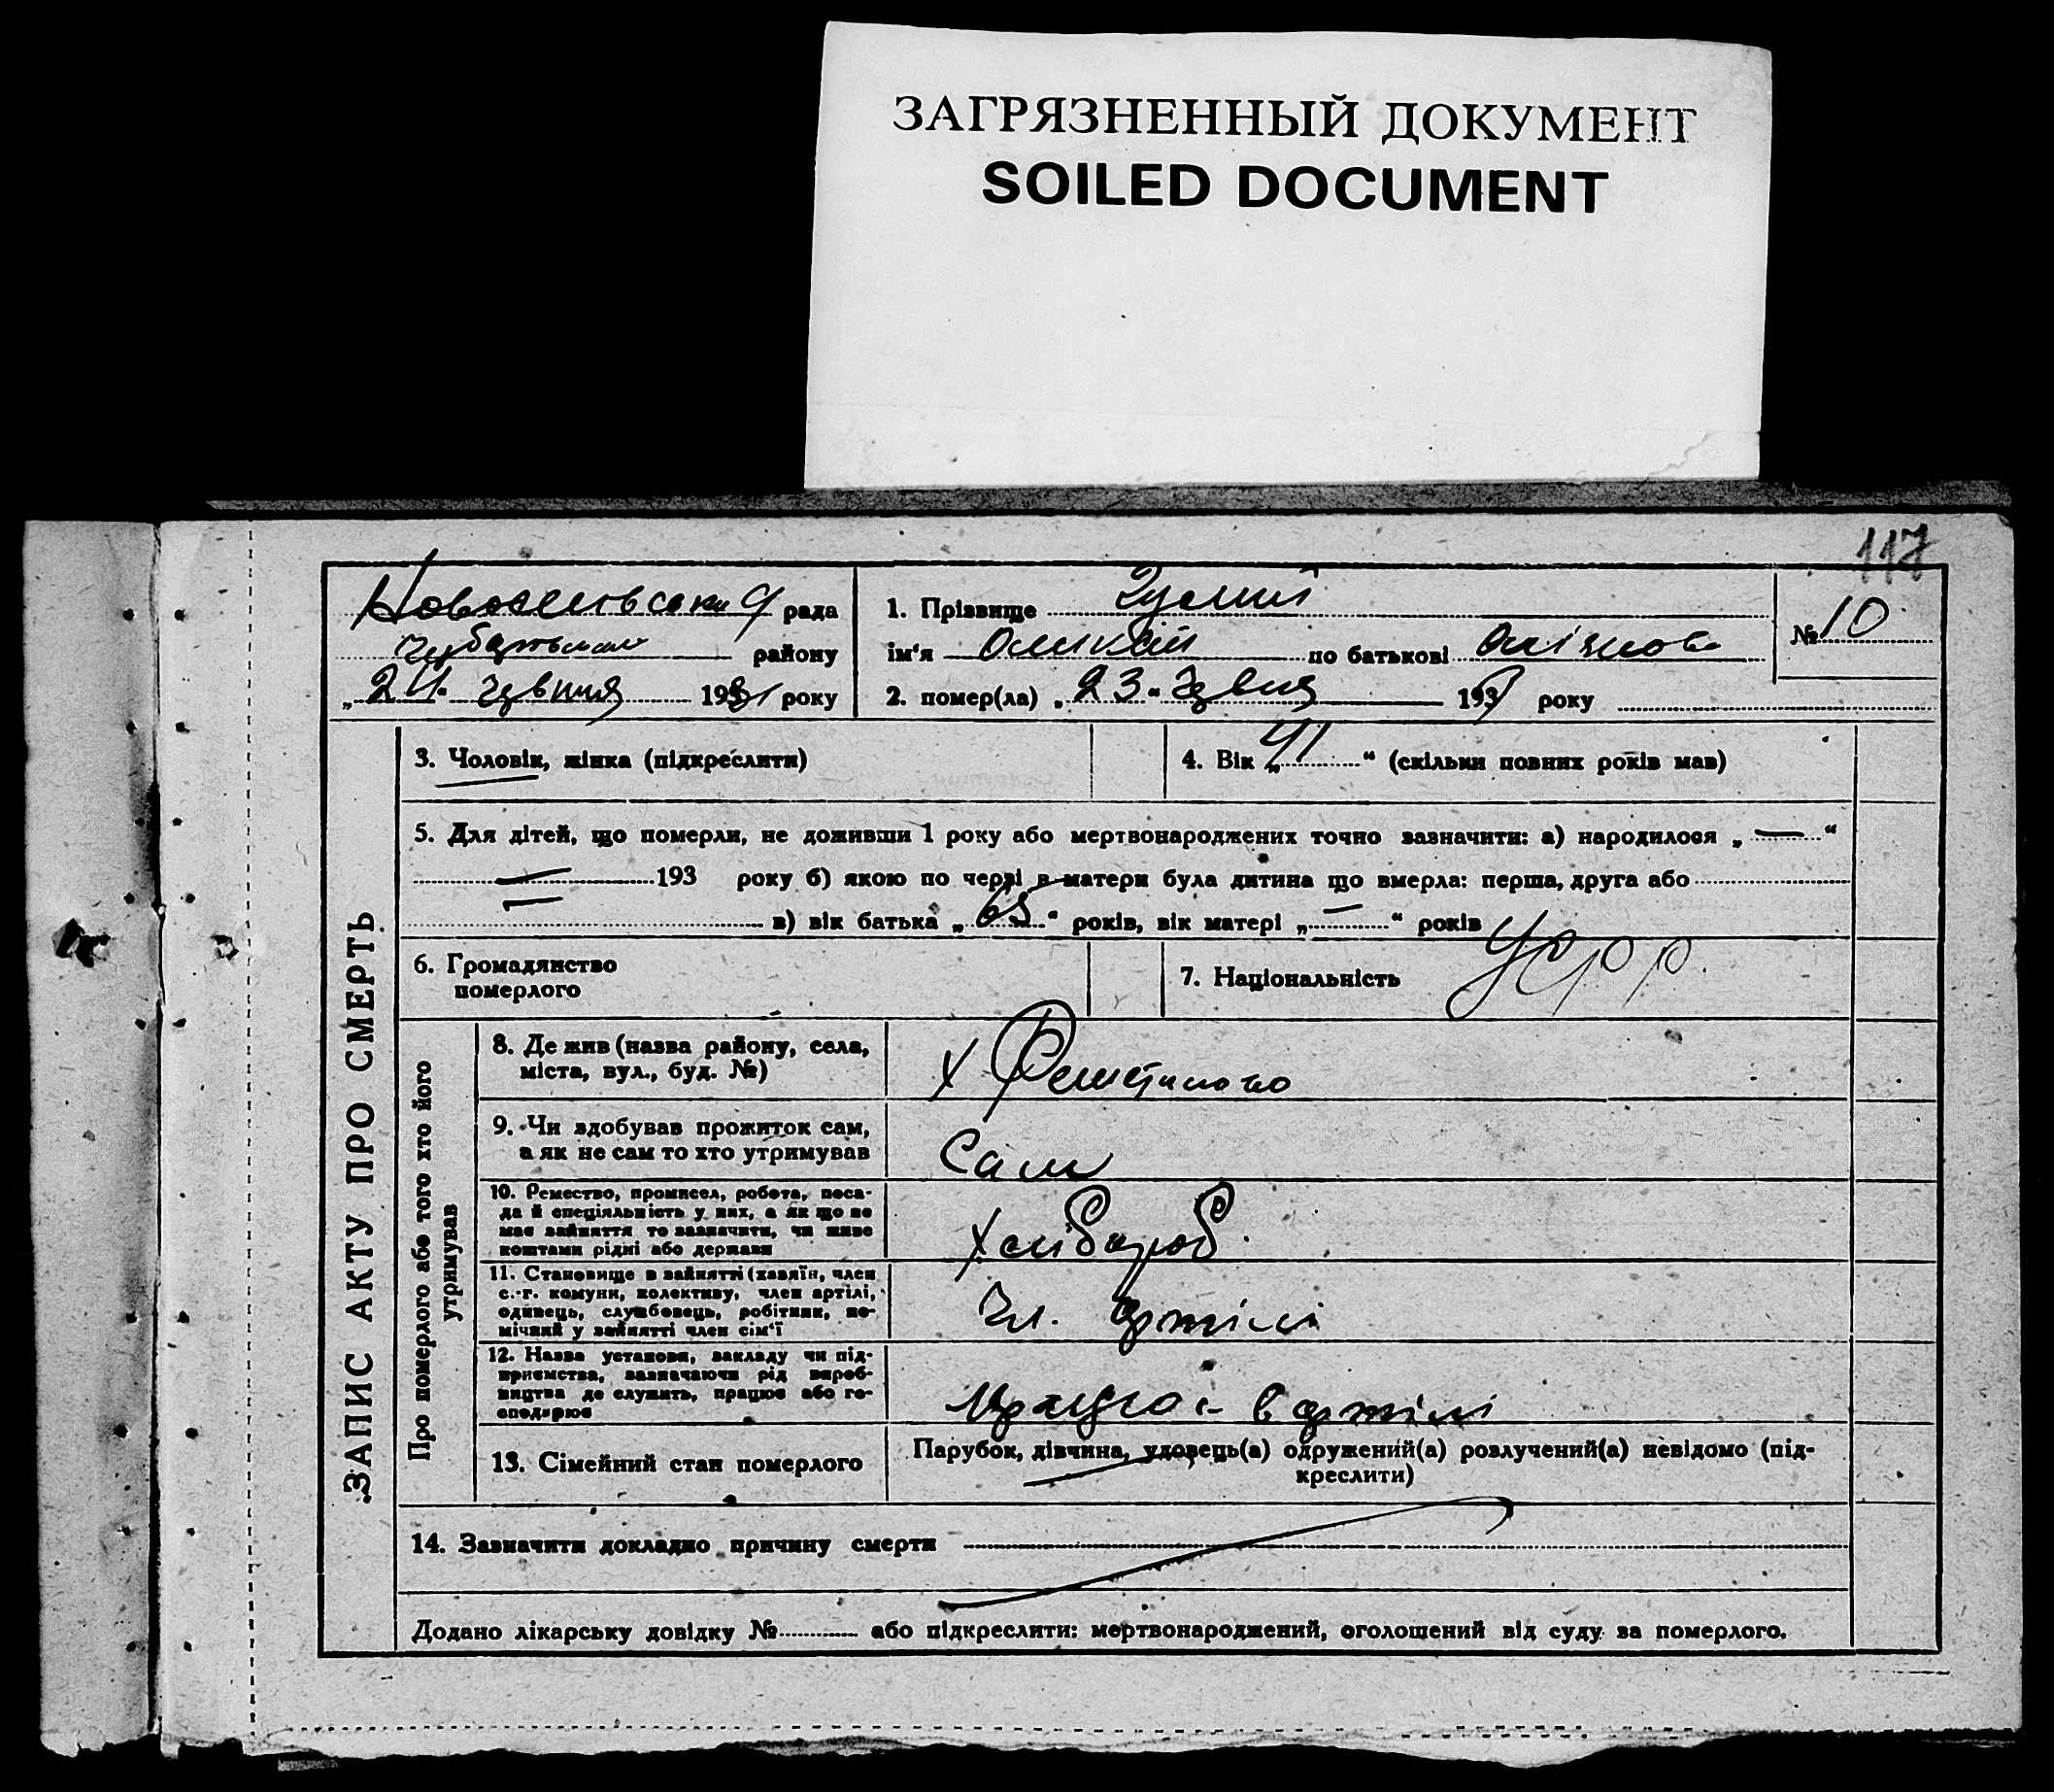 ЗАГРЯЗНЕННЫЙ ДОКУМЕНТ
SOILED DOCUMENT
117
рада
району
„24“ червня 1931 року
1. Прізвище
ім'я по батькові
№ 10
2. помер(ла) „23“ червня 193 року
ЗАПИС АКТУ ПРО СМЕРТЬ
3. Чоловік, жінка (підкреслити)
4. Вік „41“ (скільки повних років мав)
5. Для дітей, що померли, не доживши 1 року або мертвонароджених точно зазначити: а) народилося „—“
— 193 року б) якою по черзі в матери була дитина що вмерла: перша, друга або
— в) вік батька „65“ років, вік матері „—“ років
6. Громадянство
померлого
7. Національність УСРР
Про померлого або того хто його
утримував
8. Де жив (назва району, села,
міста, вул., буд. №)
х Решетилово
9. Чи здобував прожиток сам,
а як не сам то хто утримував
Сам
10. Ремество, промисел, робота, поса-
да й спеціяльність у них, а як що не
має зайняття то зазначити, чи живе
коштами рідні або держави
Хлібороб
11. Становище в зайнятті (хазяїн, член
с.-г. комуни, колективу, член артілі,
одинець, службовець, робітник, по-
мічний у зайнятті член сім'ї
Чл. артілі
12. Назва установи, закладу чи під-
приємства, зазначаючи рід вироб-
ництва де служить, працює або го-
сподарює
в артілі
13. Сімейний стан померлого
Парубок, дівчина, удовець(а) одружений(а) розлучений(а) невідомо (під-
креслити)
14. Зазначити докладно причину смерти
Додано лікарську довідку № або підкреслити: мертвонароджений, оголошений від суду за померлого.